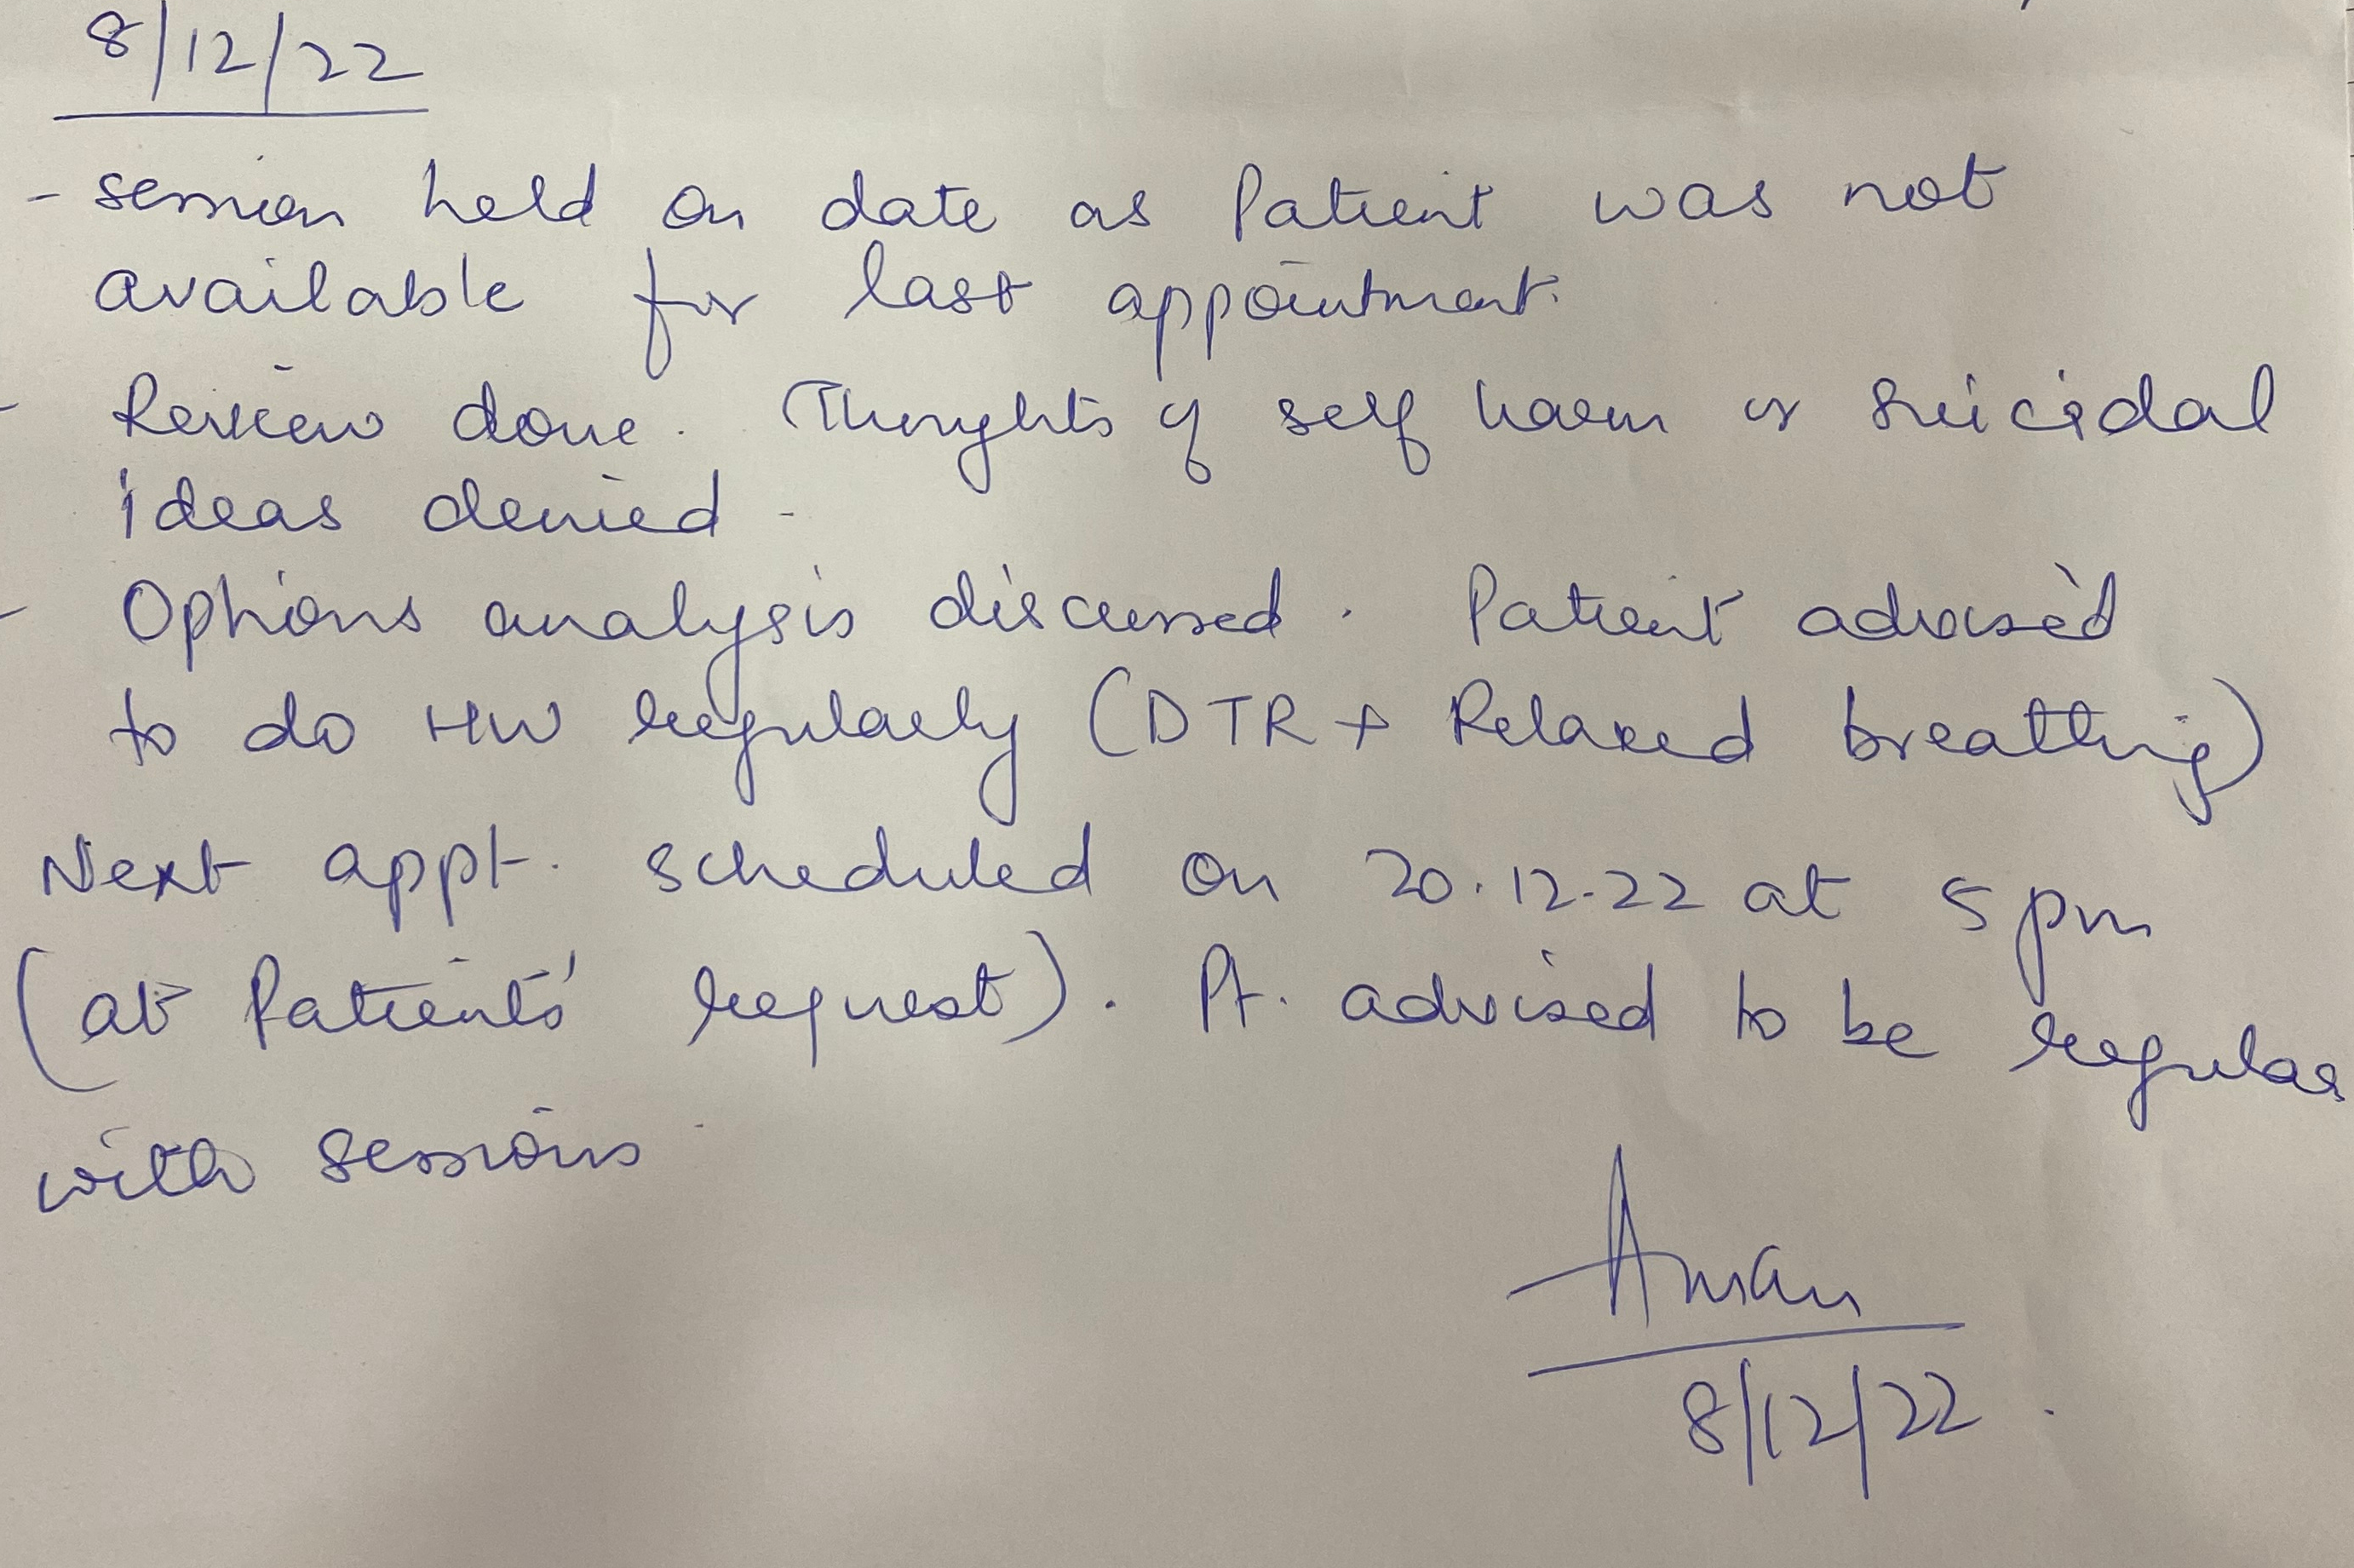 8/12/22
- session held on date as Patient was not
available for last appointment.
- Review done. Thoughts of self harm or suicidal
ideas denied -
- Options analysis discussed. Patient advised
to do HW regularly (DTR + Relaxed breathing)
Next appt. scheduled on 20.12.22 at 5 pm
(at Patients' request). Pt. advised to be regular
with sessions
8/12/22.